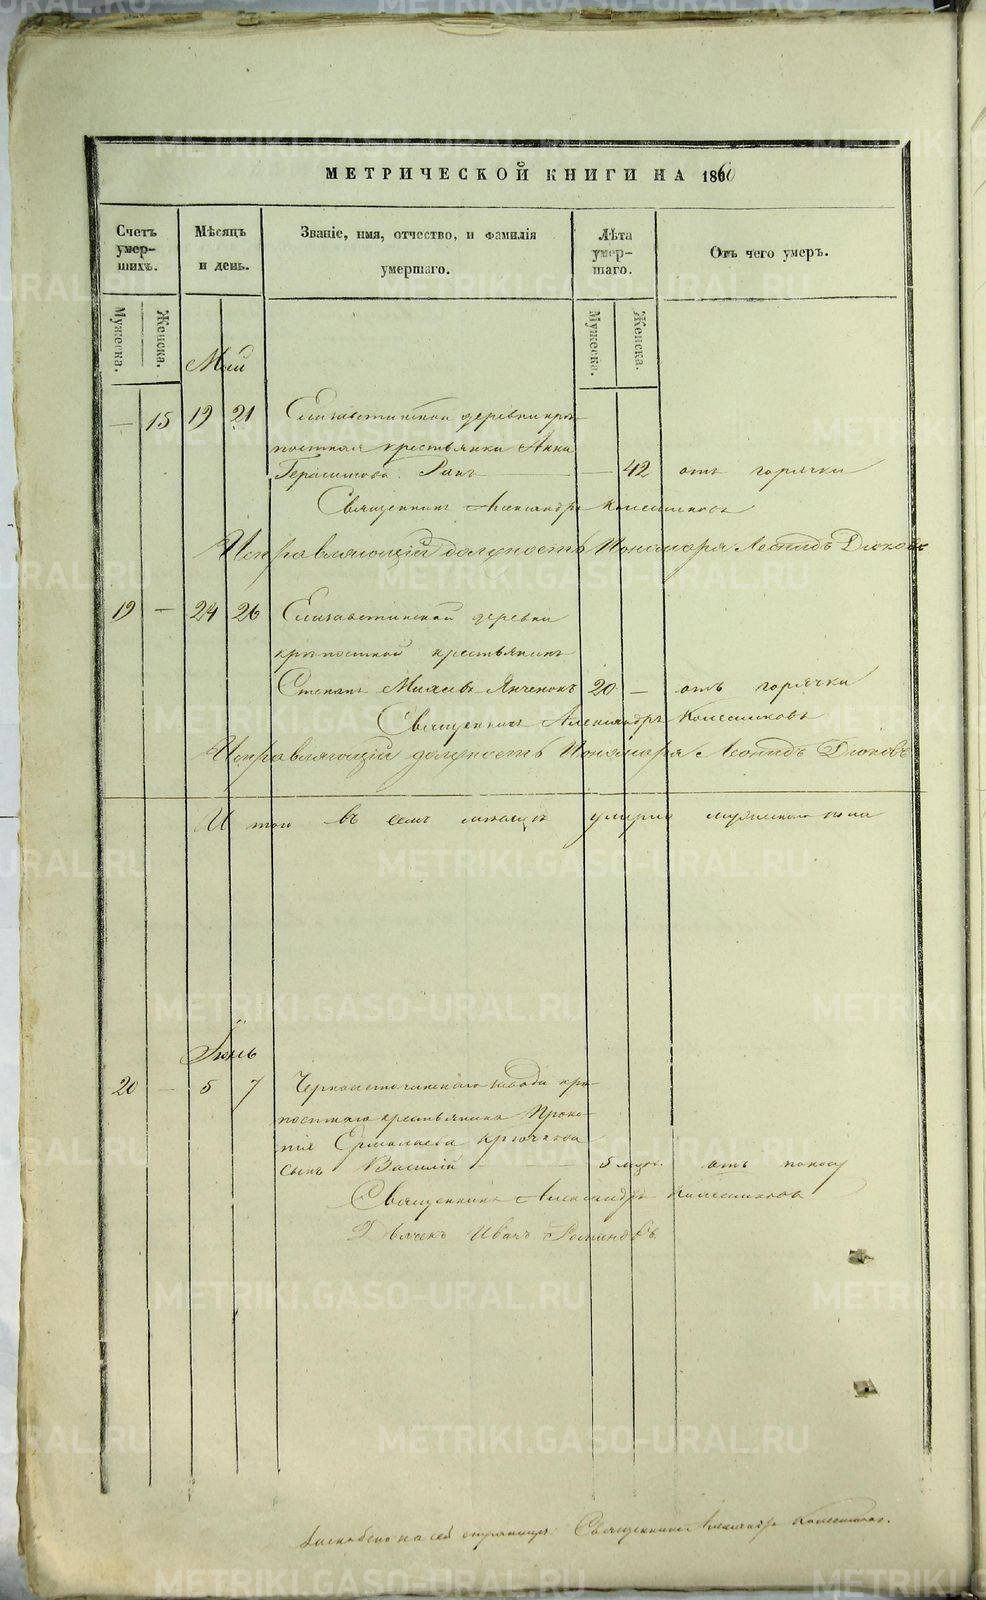 МЕТРИЧЕСКОЙ КНИГИ НА 1860
Счетъ умерших. Мѣсяцъ и день. Званіе, имя, отчество, и фамилія умершаго. Лѣта умершаго. Отъ чего умеръ.
Мужеска. Женска. Мужеска. Женска.
Май
— 15 19 21 Елизаветинской деревни крѣ-
постная крестьянка Анна
Герасимова — 42 отъ горячки
Священникъ Александръ Колесниковъ
Исправляющій должность Пономаря Леонидъ Дюковъ
19 — 24 26 Елизаветинской деревни
крѣпостной крестьянинъ
Степанъ 20 — отъ горячки
Священникъ Александръ Колесниковъ
Исправляющій должность Пономаря Леонидъ Дюковъ
Итого въ семъ мѣсяцѣ умерло мужескаго пола
Іюнь
20 — 5 7 Черноисточинскаго завода крѣ-
постнаго крестьянина Проко-
пія Ермолаева Крючкова
сынъ Василій — 5 мѣсяц. отъ поносу
Священникъ Александръ Колесниковъ
Дьячекъ Иванъ
на сей страницѣ Священникъ Александръ Колесниковъ.
METRIKI.GASO-URAL.RU